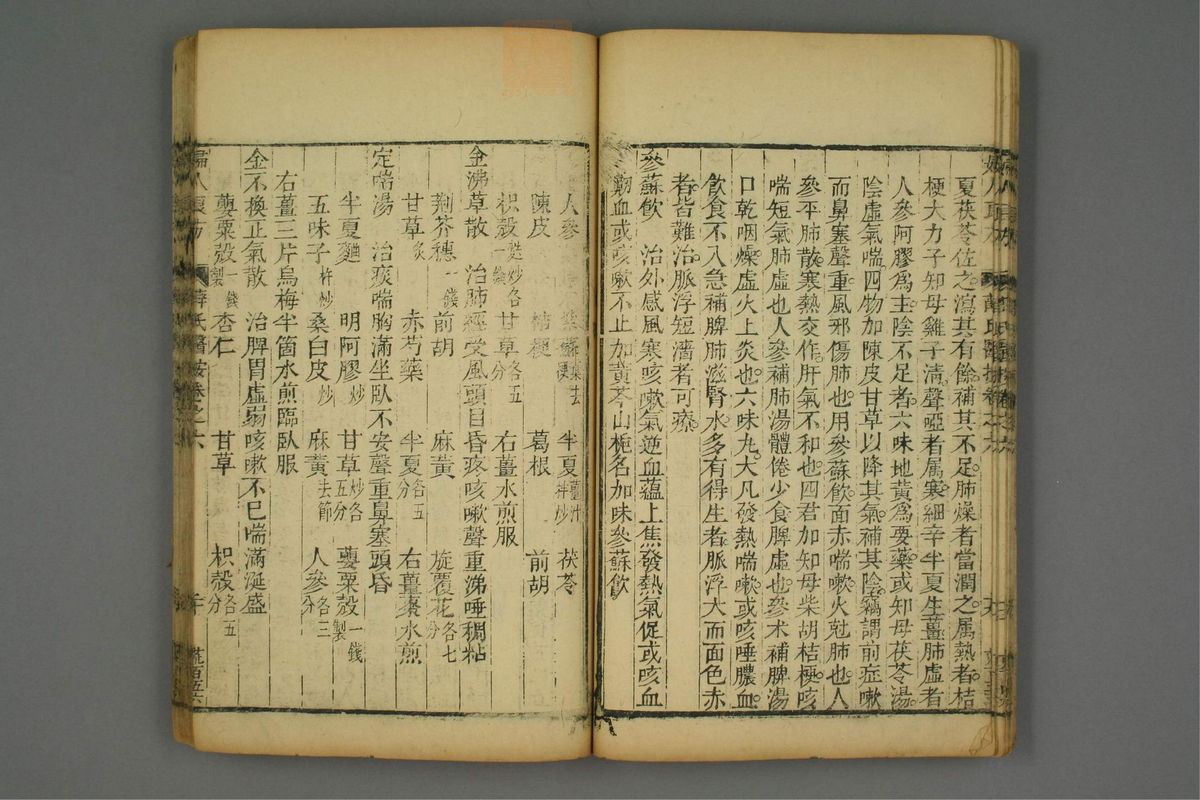 夏茯苓佐之瀉其有餘補其不足肺燥者當潤之属熱者桔
梗大力子知母雞子清聲啞者属寒細辛半夏生薑肺虛者
人參阿膠爲主陰不足者六味地黄爲要藥或知母茯苓湯
陰虛氣喘四物加陳皮甘草以降其氣補其陰竊謂前症嗽
而鼻塞聲重風邪傷肺也用參蘇飲面赤喘嗽火尅肺也人
參平肺散寒熱交作肝氣不和也四君加知母柴胡桔梗咳
喘短氣肺虛也人參補肺湯體倦少食脾虛也參术補脾湯
口乾咽燥虛火上炎也六味丸大凡發熱喘嗽或咳唾膿血
飲食不入急補脾肺滋腎水多有得生者脈浮大而面色赤
者皆難治脈浮短濇者可療
參蘇飲 治外感風寒咳嗽氣逆血蘊上焦發熱氣促或咳血
衂血或咳嗽不止加黄芩山梔名加味參蘇飲
人參 紫蘇 半夏薑汁拌炒 茯苓
陳皮 桔梗 葛根 前胡
枳殼麩炒各一錢 甘草各五分 右薑水煎服
金沸草散 治肺經受風頭目昏疼咳嗽聲重涕唾稠粘
荆芥穗一錢 前胡 麻黄 旋覆花各七分
甘草炙 赤芍藥 半夏各五分 右薑棗水煎
定喘湯 治痰喘胸滿坐臥不安聲重鼻塞頭昏
半夏麯 明阿膠炒 甘草炒各五分 罌粟殼一錢製
五味子杵炒 桑白皮炒 麻黄去節 人參各三分
右薑三片烏梅半箇水煎臨臥服
金不換正氣散 治脾胃虛弱咳嗽不已喘滿涎盛
罌粟殼一錢製 杏仁 甘草 枳殼各五分
婦人良方 薛氏醫按卷之六